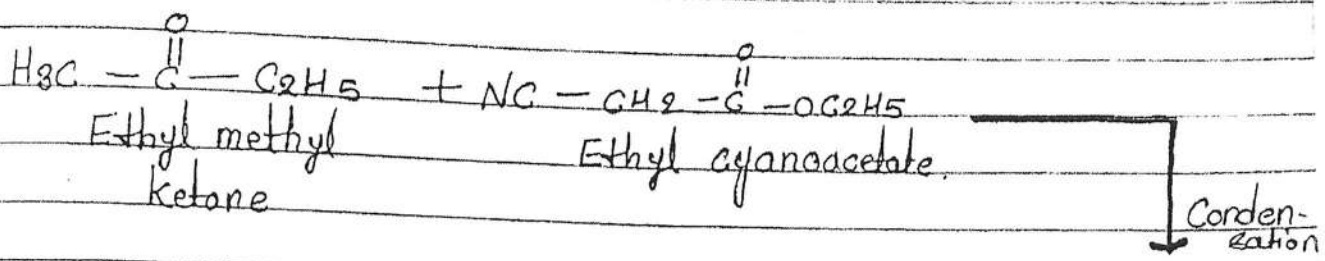 O O
H3C - C - C2H5 + NC - CH2 - C - OC2H5
Ethyl methyl Ketone
Ethyl cyanoacetate.
Conden-
sation